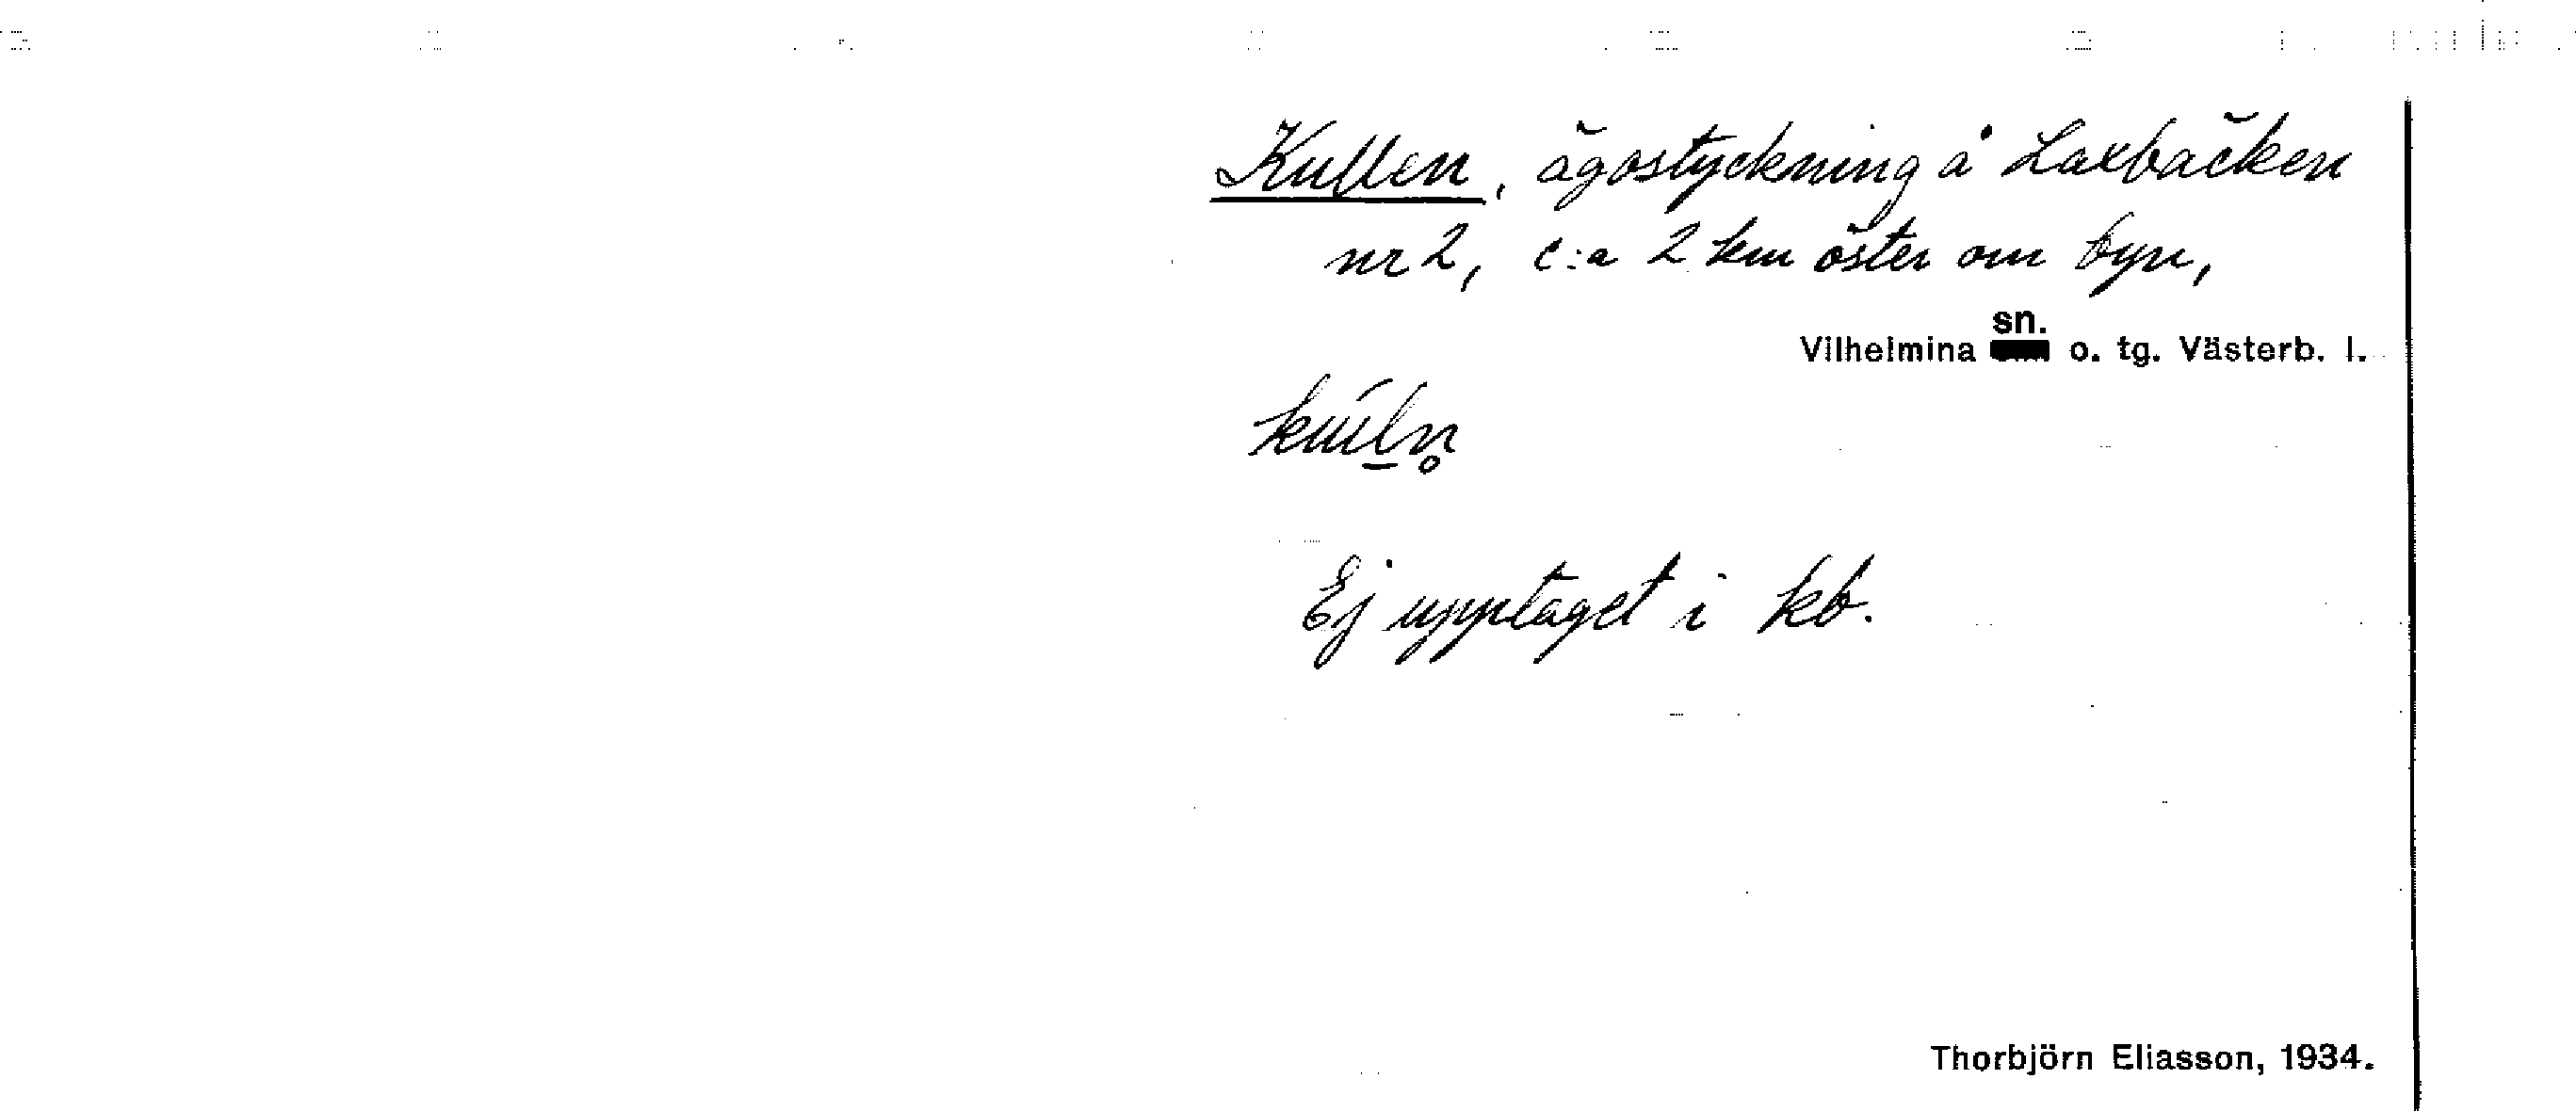 Kullen, ägostyckning å Laxbäcken
nr 2, c:a 2 km öster om byn,
Vilhelmina sn. o. tg. Västerb. l.
kúl̲n̥
Ej upptaget i kb.
Thorbjörn Eliasson, 1934.